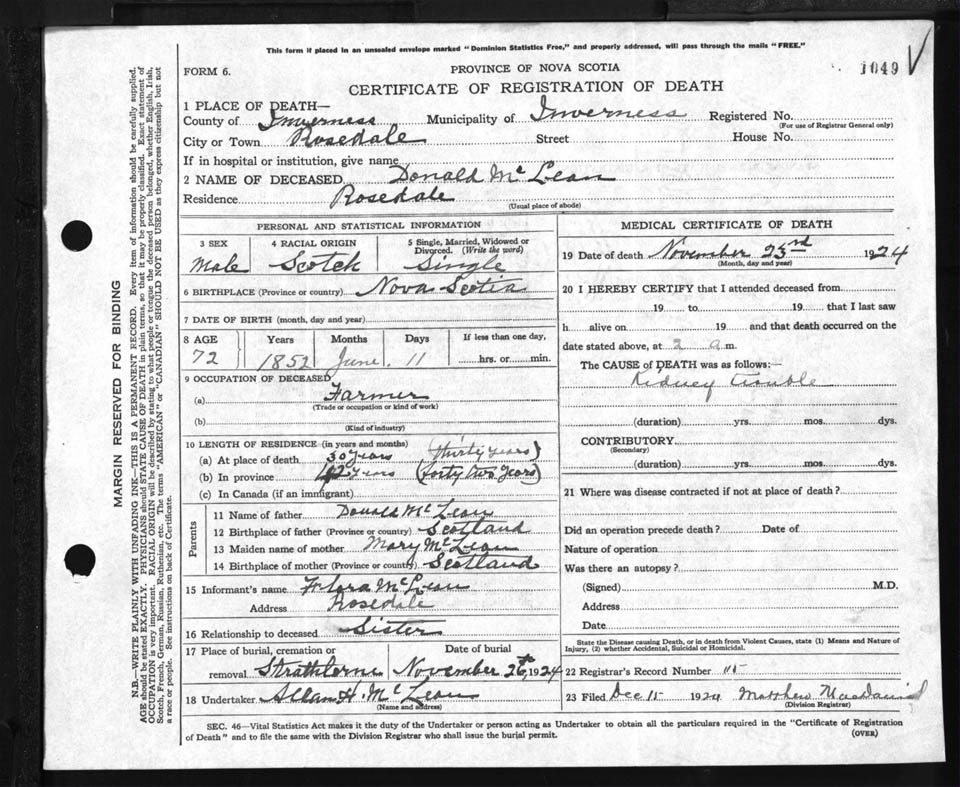 This form if placed in an unsealed envelope marked "Dominion Statistics Free," and properly addressed, will pass through the mails "FREE."
FORM 6.
PROVINCE OF NOVA SCOTIA
1049
CERTIFICATE OF REGISTRATION OF DEATH
1 PLACE OF DEATH—
County of Inverness Municipality of Inverness Registered No.
(For use of Registrar General only)
City or Town Rosedale Street House No.
If in hospital or institution, give name
2 NAME OF DECEASED Donald Mc Lean
Residence Rosedale
(Usual place of abode)
PERSONAL AND STATISTICAL INFORMATION
3 SEX 4 RACIAL ORIGIN 5 Single, Married, Widowed or Divorced. (Write the word)
Male Scotch Single
6 BIRTHPLACE (Province or country) Nova Scotia
7 DATE OF BIRTH (month, day and year)
8 AGE Years Months Days If less than one day,
72 1852 June. 11 hrs. or min.
9 OCCUPATION OF DECEASED
(a) Farmer
(Trade or occupation or kind of work)
(b)
(Kind of industry)
10 LENGTH OF RESIDENCE (in years and months)
(a) At place of death 30 years (thirty years)
(b) In province 42 years (forty two years)
(c) In Canada (if an immigrant)
Parents
11 Name of father Donald Mc Lean
12 Birthplace of father (Province or country) Scotland
13 Maiden name of mother Mary Mc Lean
14 Birthplace of mother (Province or country) Scotland
15 Informant's name Flora Mc Lean
Address Rosedale
16 Relationship to deceased Sister
17 Place of burial, cremation or removal Strathlorne
Date of burial
November 26th, 1924
18 Undertaker Allan H. Mc Lean
(Name and address)
MEDICAL CERTIFICATE OF DEATH
19 Date of death November 23rd 1924
(Month, day and year)
20 I HEREBY CERTIFY that I attended deceased from
19 to 19 that I last saw
h alive on 19 and that death occurred on the
date stated above, at 2 a m.
The CAUSE of DEATH was as follows:—
Kidney trouble
(duration) yrs. mos. dys.
CONTRIBUTORY
(Secondary)
(duration) yrs. mos. dys.
21 Where was disease contracted if not at place of death?
Did an operation precede death? Date of
Nature of operation
Was there an autopsy?
(Signed) M.D.
Address
Date
State the Disease causing Death, or in death from Violent Causes, state (1) Means and Nature of Injury, (2) whether Accidental, Suicidal or Homicidal.
22 Registrar's Record Number
23 Filed Dec 15 1924 Matthew
(Division Registrar)
SEC. 46—Vital Statistics Act makes it the duty of the Undertaker or person acting as Undertaker to obtain all the particulars required in the "Certificate of Registration
of Death" and to file the same with the Division Registrar who shall issue the burial permit.
(OVER)
MARGIN RESERVED FOR BINDING
N.B.—WRITE PLAINLY WITH UNFADING INK—THIS IS A PERMANENT RECORD. Every item of information should be carefully supplied.
AGE should be stated EXACTLY. PHYSICIANS should STATE CAUSE OF DEATH in plain terms, so that it may be properly classified. Exact statement of
OCCUPATION is very important. RACIAL ORIGIN will be described by stating to what people or tongue the deceased person belonged, whether English, Irish,
Scotch, French, German, Russian, Ruthenian, etc. The terms "AMERICAN" or "CANADIAN" SHOULD NOT BE USED as they express citizenship but not
a race or people. See instructions on back of Certificate.